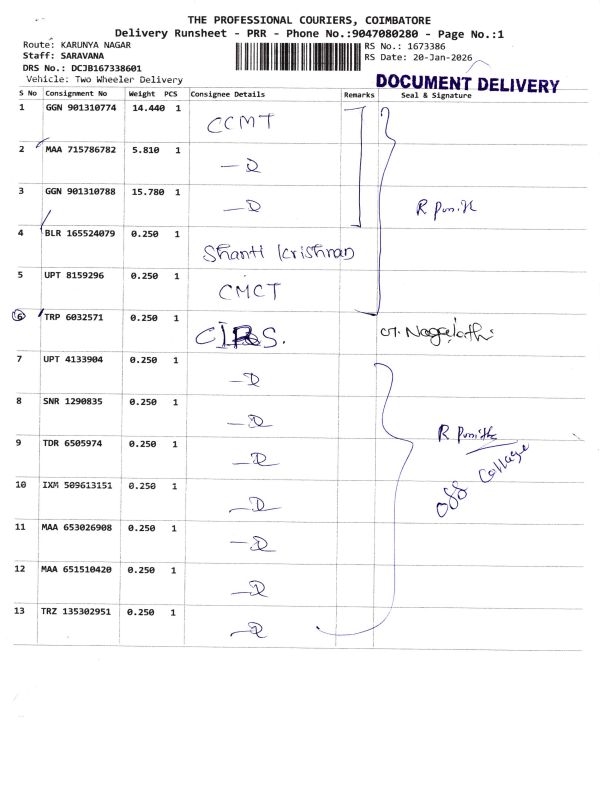 THE PROFESSIONAL COURIERS, COIMBATORE
Delivery Runsheet - PRR - Phone No.:9047080280 - Page No.:1
Route: KARUNYA NAGAR
RS No.: 1673386
Staff: SARAVANA
RS Date: 20-Jan-2026
DRS No.: DCJB167338601
Vehicle: Two Wheeler Delivery
DOCUMENT DELIVERY
S No Consignment No Weight PCS Consignee Details Remarks Seal & Signature
1 GGN 901310774 14.440 1 CCMT
2 MAA 715786782 5.810 1 —D
3 GGN 901310788 15.780 1 —D
R Punith
4 BLR 165524079 0.250 1 Shanti Krishnan
5 UPT 8159296 0.250 1 CMCT
6 TRP 6032571 0.250 1
7 UPT 4133904 0.250 1 —D
8 SNR 1290835 0.250 1 —D
9 TDR 6505974 0.250 1 —D
R Punith
10 IXM 509613151 0.250 1 —D
off College
11 MAA 653026908 0.250 1 —D
12 MAA 651510420 0.250 1 —D
13 TRZ 135302951 0.250 1 —D